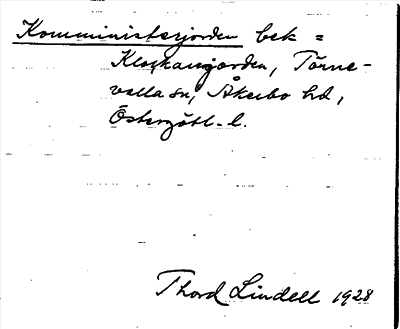 Komministerjorden bek =
Klockarjorden, Törne-
valla sn, Åkerbo hd,
Östergötl. l.
Thord Lindell 1928